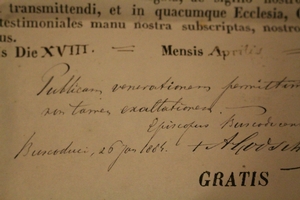 transmittendi, et in quacumque Ecclesia,
testimoniales manu nostra subscriptas, nostro
us.
s Die XVIII. Mensis Aprilis
Publicam venerationem permittim
non tamen exaltationem.
Episcopus Buscoducen
Buscoduci, 26 Jan 1884. + A Godsch
GRATIS